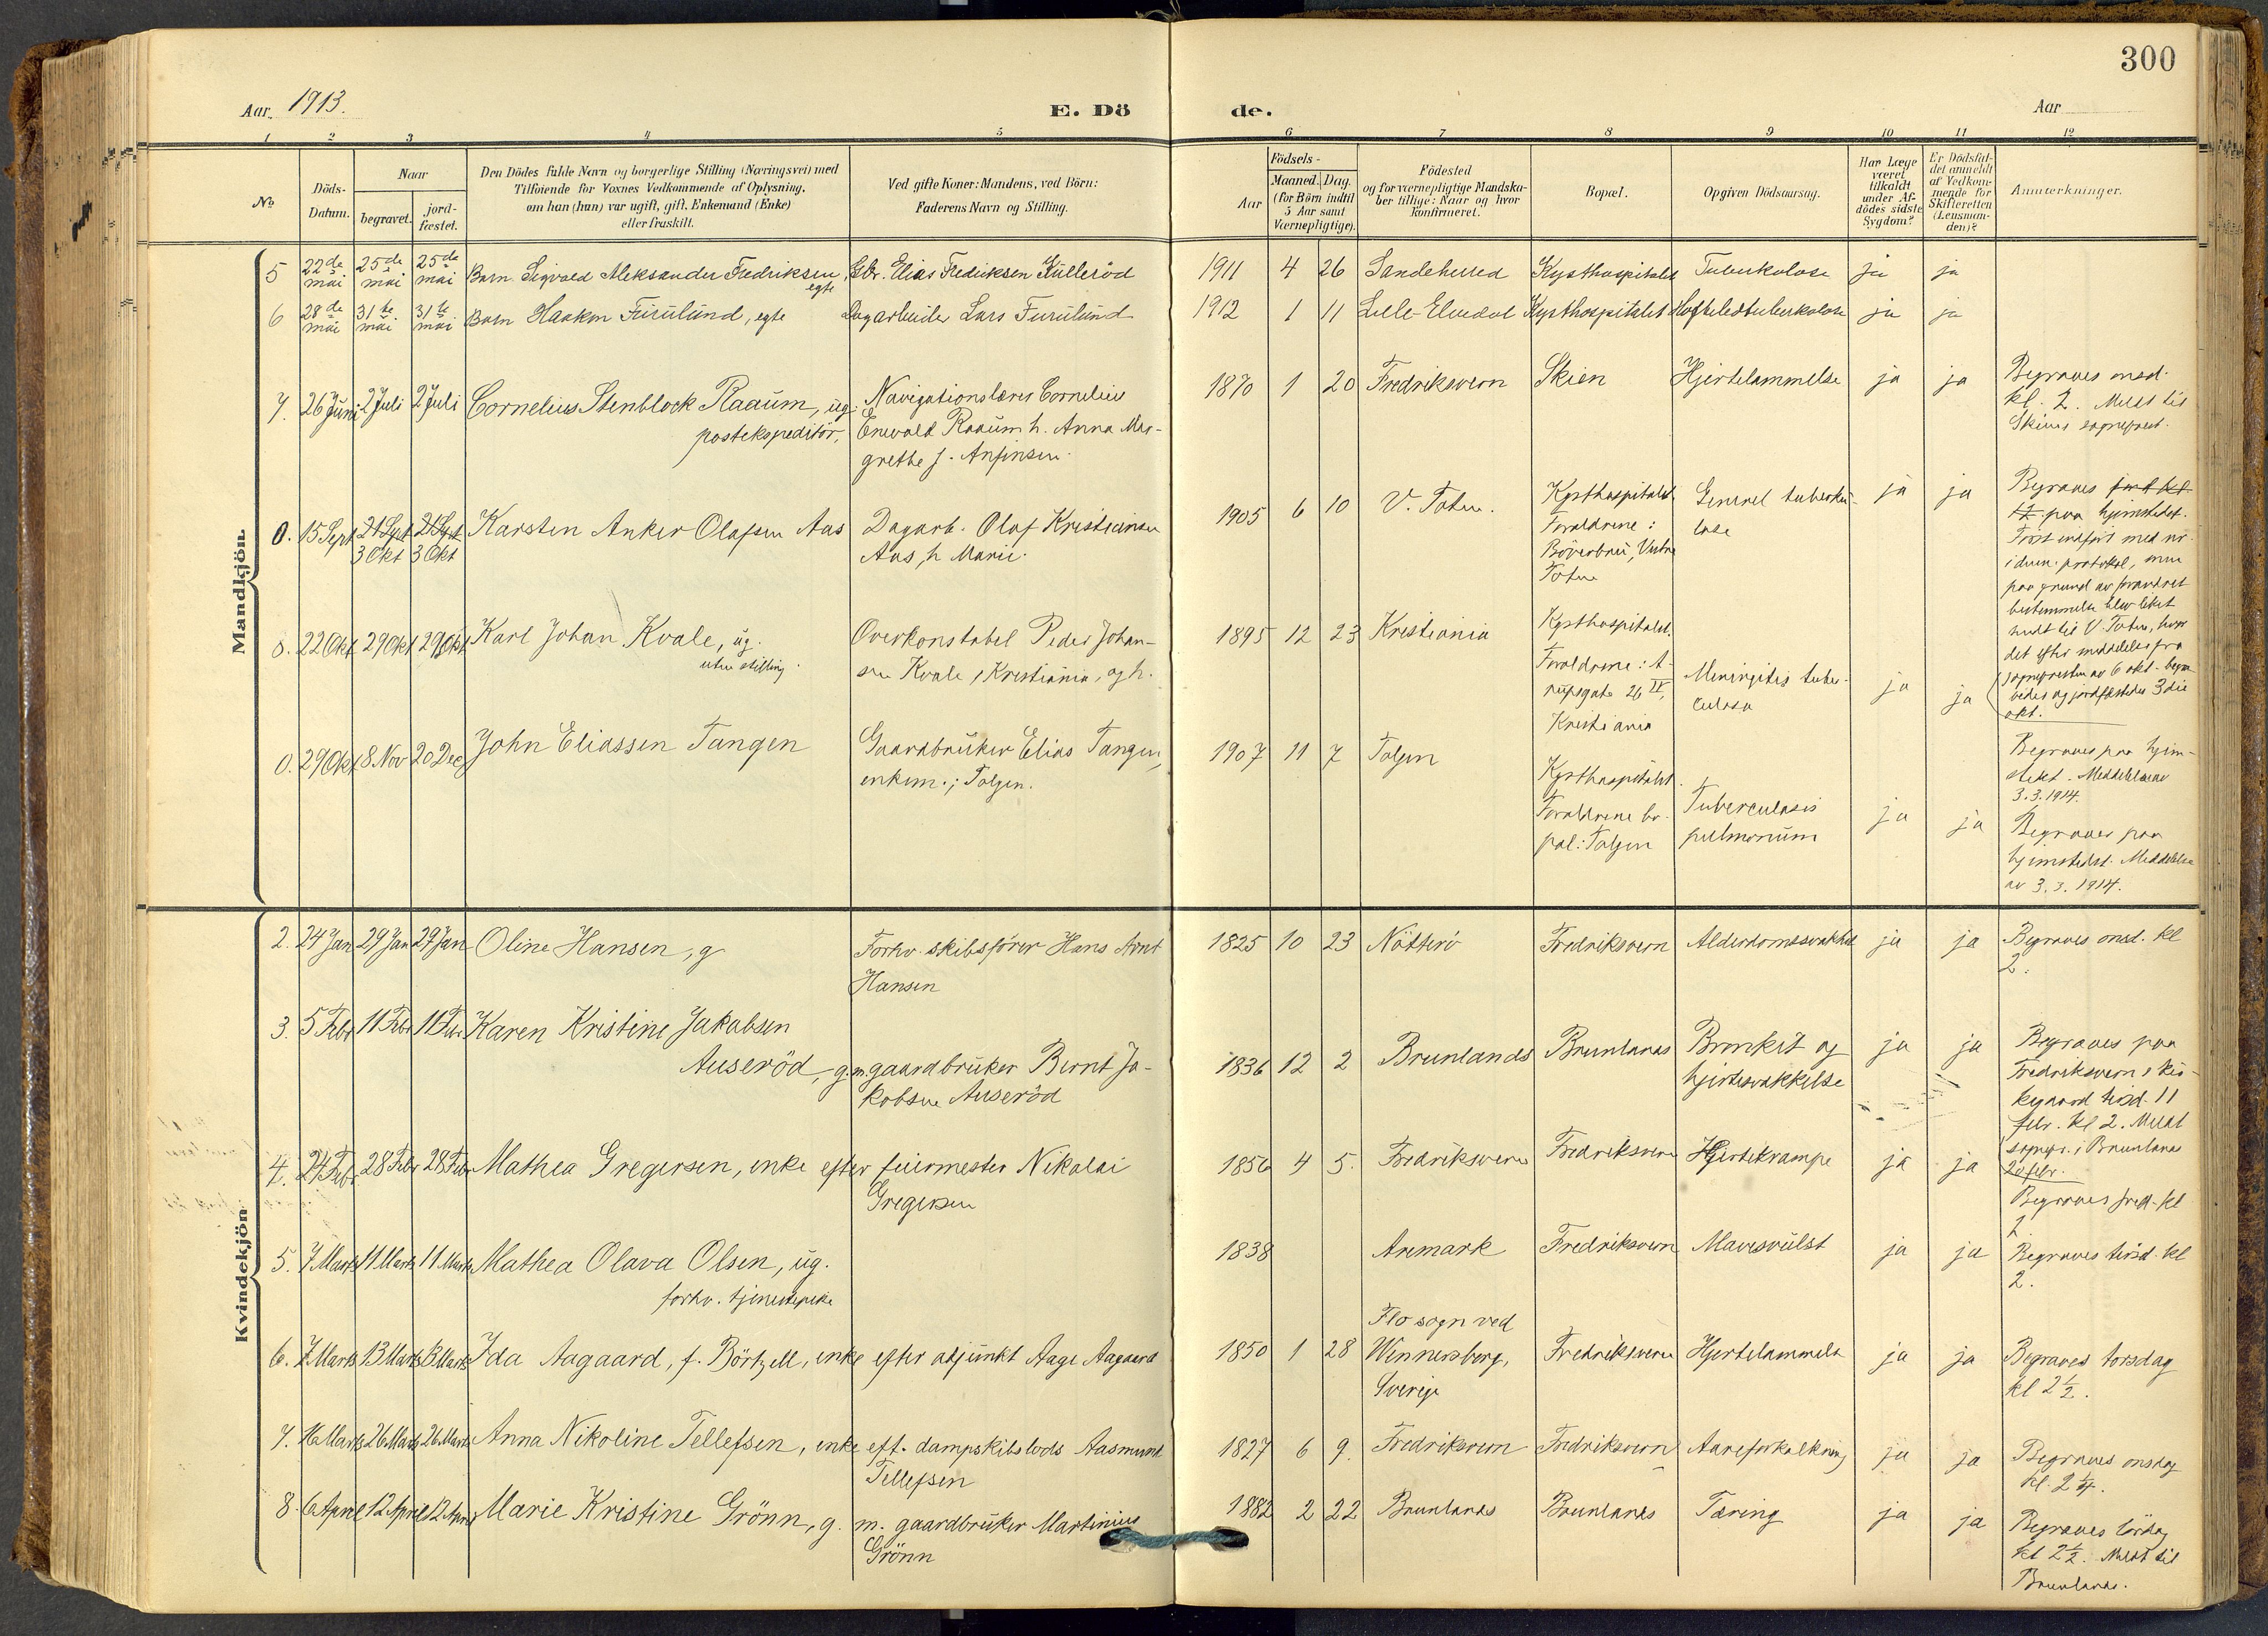 300
Aar 1913.
E. Dö
de.
Aar
1 2 3 4 5 6 7 8 9 10 11 12
No
Döds-
Datum.
Naar
begravet.
jord-
fæstet.
Den Dödes fulde Navn og borgerlige Stilling (Næringsvei) med
Tilföiende for Voxnes Vedkommende af Oplysning,
om han (hun) var ugift, gift, Enkemand (Enke)
eller fraskilt.
Ved gifte Koner: Mandens, ved Börn:
Faderens Navn og Stilling.
Födsels-
Aar
Maaned. Dag.
(for Börn indtil
5 Aar samt
Værnepligtige).
Födested
og for værnepligtige Mandska-
ber tillige: Naar og hvor
konfirmeret.
Bopæl.
Opgiven Dödsaarsag.
Har Læge
været
tilkaldt
under Af-
dödes sidste
Sygdom?
Er Dödsfal-
det anmeldt
af Vedkom-
mende for
Skifteretten
(Lensman-
den)?
Anmerkninger.
Mandkjön.
5 22de mai 25de mai 25de mai Barn Sigvald Aleksander Fredriksen, egte Elias Fredriksen Kulleröd 1911 4 26 Sandeherred Kysthospitalet Tuberkulose ja ja
6 28de mai 31te mai 31te mai Barn Haakon Furulund, egte Dagarbeider Lars Furulund 1912 1 11 Lille-Elvedal Kysthospitalet Hofteledstuberkulose ja ja
7. 26 Juni 2 Juli 2 Juli Cornelius Stenblock Raaum, ug. Navigationslærer Cornelius 1870 1 20 Fredriksvern Skien Hjertelammelse ja ja Begraves onsd.
postekspeditör, Enevold Raaum h. Anna Mar- kl. 2. Meldt til
grethe f. Anfinsen. Skiens sogneprest.
0. 15 Sept 21 Sept 21 Sept Karsten Anker Olafsen Aas Dagarb. Olaf Kristiansen 1905 6 10 V. Toten. Kysthospitalet. Generel tuberku- ja ja Begraves
3 Okt 3 Okt Aas, h Marie. Forældrene: lose paa hjemstedet.
Böverbru, Vestre Först indfört med nr.
Toten i protokol, men
paa grund av forandret
bestemmelse blev liket
sendt til V. Toten, hvor
det efter meddelelse fra
sognepresten av 6 okt. begra-
vedes og jordfæstedes 3die
okt.
0. 22 Okt 29 Okt 29 Okt Karl Johan Kvale, ug. Overkonstabel Peder Johan- 1895 12 23 Kristiania Kysthospitalet. Meningitis tuber- ja ja Begraves paa hjem-
uten stilling. sen Kvale, Kristiania, og h. Forældrene: culosa stedet. Meddelelse av
26 II, 3.3.1914.
Kristiania
0. 29 Okt 8 Nov 20 Dec John Eliassen Tangen Gaardbruker Elias Tangen, 1907 11 7 Tolgen Kysthospitalet. Tuberculosis ja ja Begraves paa
enkem.; Tolgen. Forældrene bo- pulmonum hjemstedet. Meddelelse
pæl: Tolgen av 3.3.1914.
Kvindekjön
2. 24 Jan 29 Jan 29 Jan Oline Hansen, g Forhv. skibsförer Hans Arnt 1825 10 23 Nötterö Fredriksvern Alderdomssvakhed ja ja Begraves onsd. kl
Hansen 2.
3. 5 Febr 11 Febr 11 Febr Karen Kristine Jakobsen 1836 12 2 Brunlands Brunlanes Bronkit og ja ja Begraves paa
Auseröd, g. m. gaardbruker Bernt Ja- hjertesvakkelse Fredriksvern kir-
kobsen Auseröd kegaard tirsd. 11
febr. kl 2. Meldt
sognepr. i Brunlanes
20 febr.
4. 24 Feb. 28 Febr 28 Febr Mathea Gregersen, enke efter feiermester Nikolai 1856 4 5. Fredriksvern Fredriksvern Hjertekrampe ja ja Begraves fred. kl
Gregersen 2
5. 7 Marts 11 Marts 11 Marts Mathea Olava Olsen, ug. 1838 Aremark Fredriksvern Mavesvulst ja ja Begraves tirsd. kl
forhv. tjenestepike 2.
6. 7 Marts 13 Marts 13 Marts Ida Aagaard, f. Börtzell, enke efter adjunkt Aage Aagaard 1850 1 28 Flo sogn ved Fredriksvern Hjertelammelse ja ja Begraves torsdag
Wennersborg, kl 2½.
Sverige
7. 16 Marts 26 Marts 26 Marts Anna Nikoline Tellefsen, enke eft. dampskibslods Aasmund 1827 6 9. Fredriksvern Fredriksvern Aareforkalkning ja ja Begraves onsdag
Tellefsen kl. 2¼.
8. 6 April 12 April 12 April Marie Kristine Grönn, g. m. gaardbruker Martinius 1882 2 22 Brunlanes Brunlanes Tæring ja ja Begraves lördag
Grönn kl 2½. Meldt til
Brunlanes.